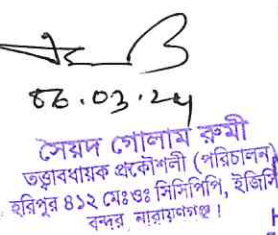 ০৬.০৩.২৪
সৈয়দ গোলাম রুমী
তত্ত্বাবধায়ক প্রকৌশলী (পরিচালন)
হরিপুর ৪১২ মেঃওঃ সিসিপিপি, ইজিসি
বন্দর নারায়ণগঞ্জ।